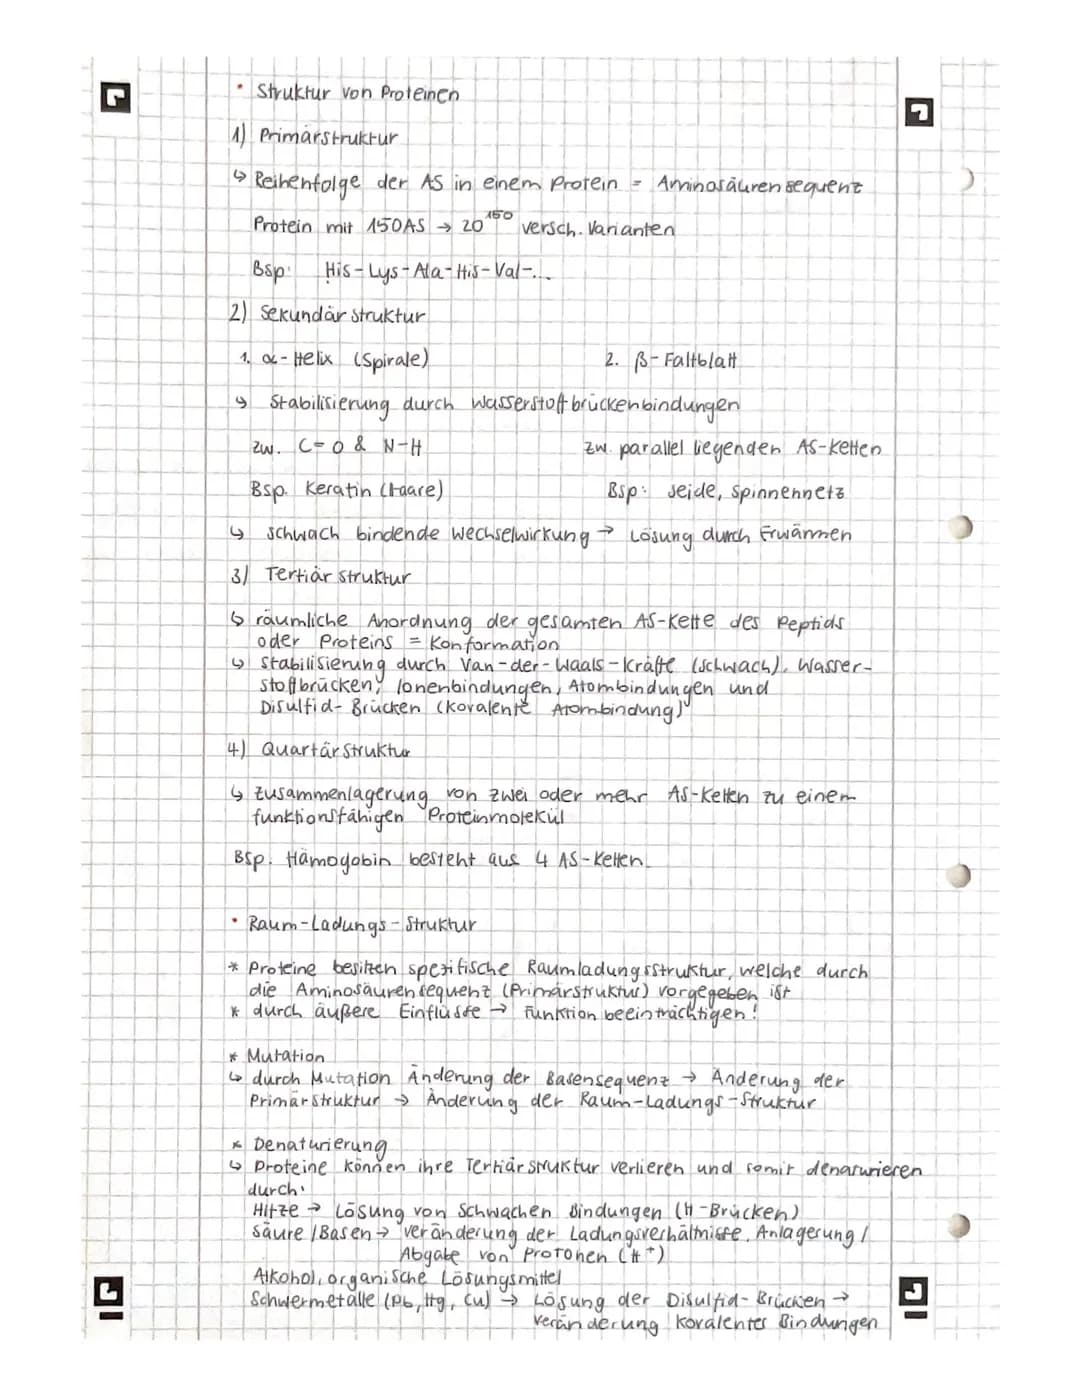 • Struktur von Proteinen
1) Primärstruktur
↳ Reihenfolge der AS in einem Protein = Aminosäurensequenz
Protein mit 150 AS → 20¹⁵⁰ versch. Varianten
Bsp: His-Lys-Ala-His-Val-...
2) Sekundärstruktur
1. α-Helix (Spirale) 2. β-Faltblatt
↳ Stabilisierung durch Wasserstoffbrückenbindungen
zw. C=O & N-H zw. parallel liegenden AS-Ketten
Bsp. Keratin (Haare) Bsp: Seide, Spinnennetz
↳ schwach bindende Wechselwirkung → Lösung durch Erwärmen
3) Tertiärstruktur
↳ räumliche Anordnung der gesamten AS-Kette des Peptids
oder Proteins = Konformation
↳ Stabilisierung durch Van-der-Waals-Kräfte (schwach), Wasser-
stoffbrücken, Ionenbindungen, Atombindungen und
Disulfid-Brücken (kovalente Atombindung)
4) Quartärstruktur
↳ Zusammenlagerung von zwei oder mehr AS-Ketten zu einem
funktionsfähigen Proteinmolekül
Bsp. Hämogobin besteht aus 4 AS-Ketten
• Raum-Ladungs-Struktur
* Proteine besitzen spezifische Raumladungsstruktur, welche durch
die Aminosäurensequenz (Primärstruktur) vorgegeben ist
* durch äußere Einflüsse → Funktion beeinträchtigen!
* Mutation
↳ durch Mutation Änderung der Basensequenz → Änderung der
Primärstruktur → Änderung der Raum-Ladungs-Struktur
* Denaturierung
↳ Proteine können ihre Tertiärstruktur verlieren und somit denaturieren
durch:
Hitze → Lösung von schwachen Bindungen (H-Brücken)
Säure/Basen → Veränderung der Ladungsverhältnisse, Anlagerung/
Abgabe von Protonen (H⁺)
Alkohol, organische Lösungsmittel
Schwermetalle (Pb, Hg, Cu) → Lösung der Disulfid-Brücken →
Veränderung kovalenter Bindungen